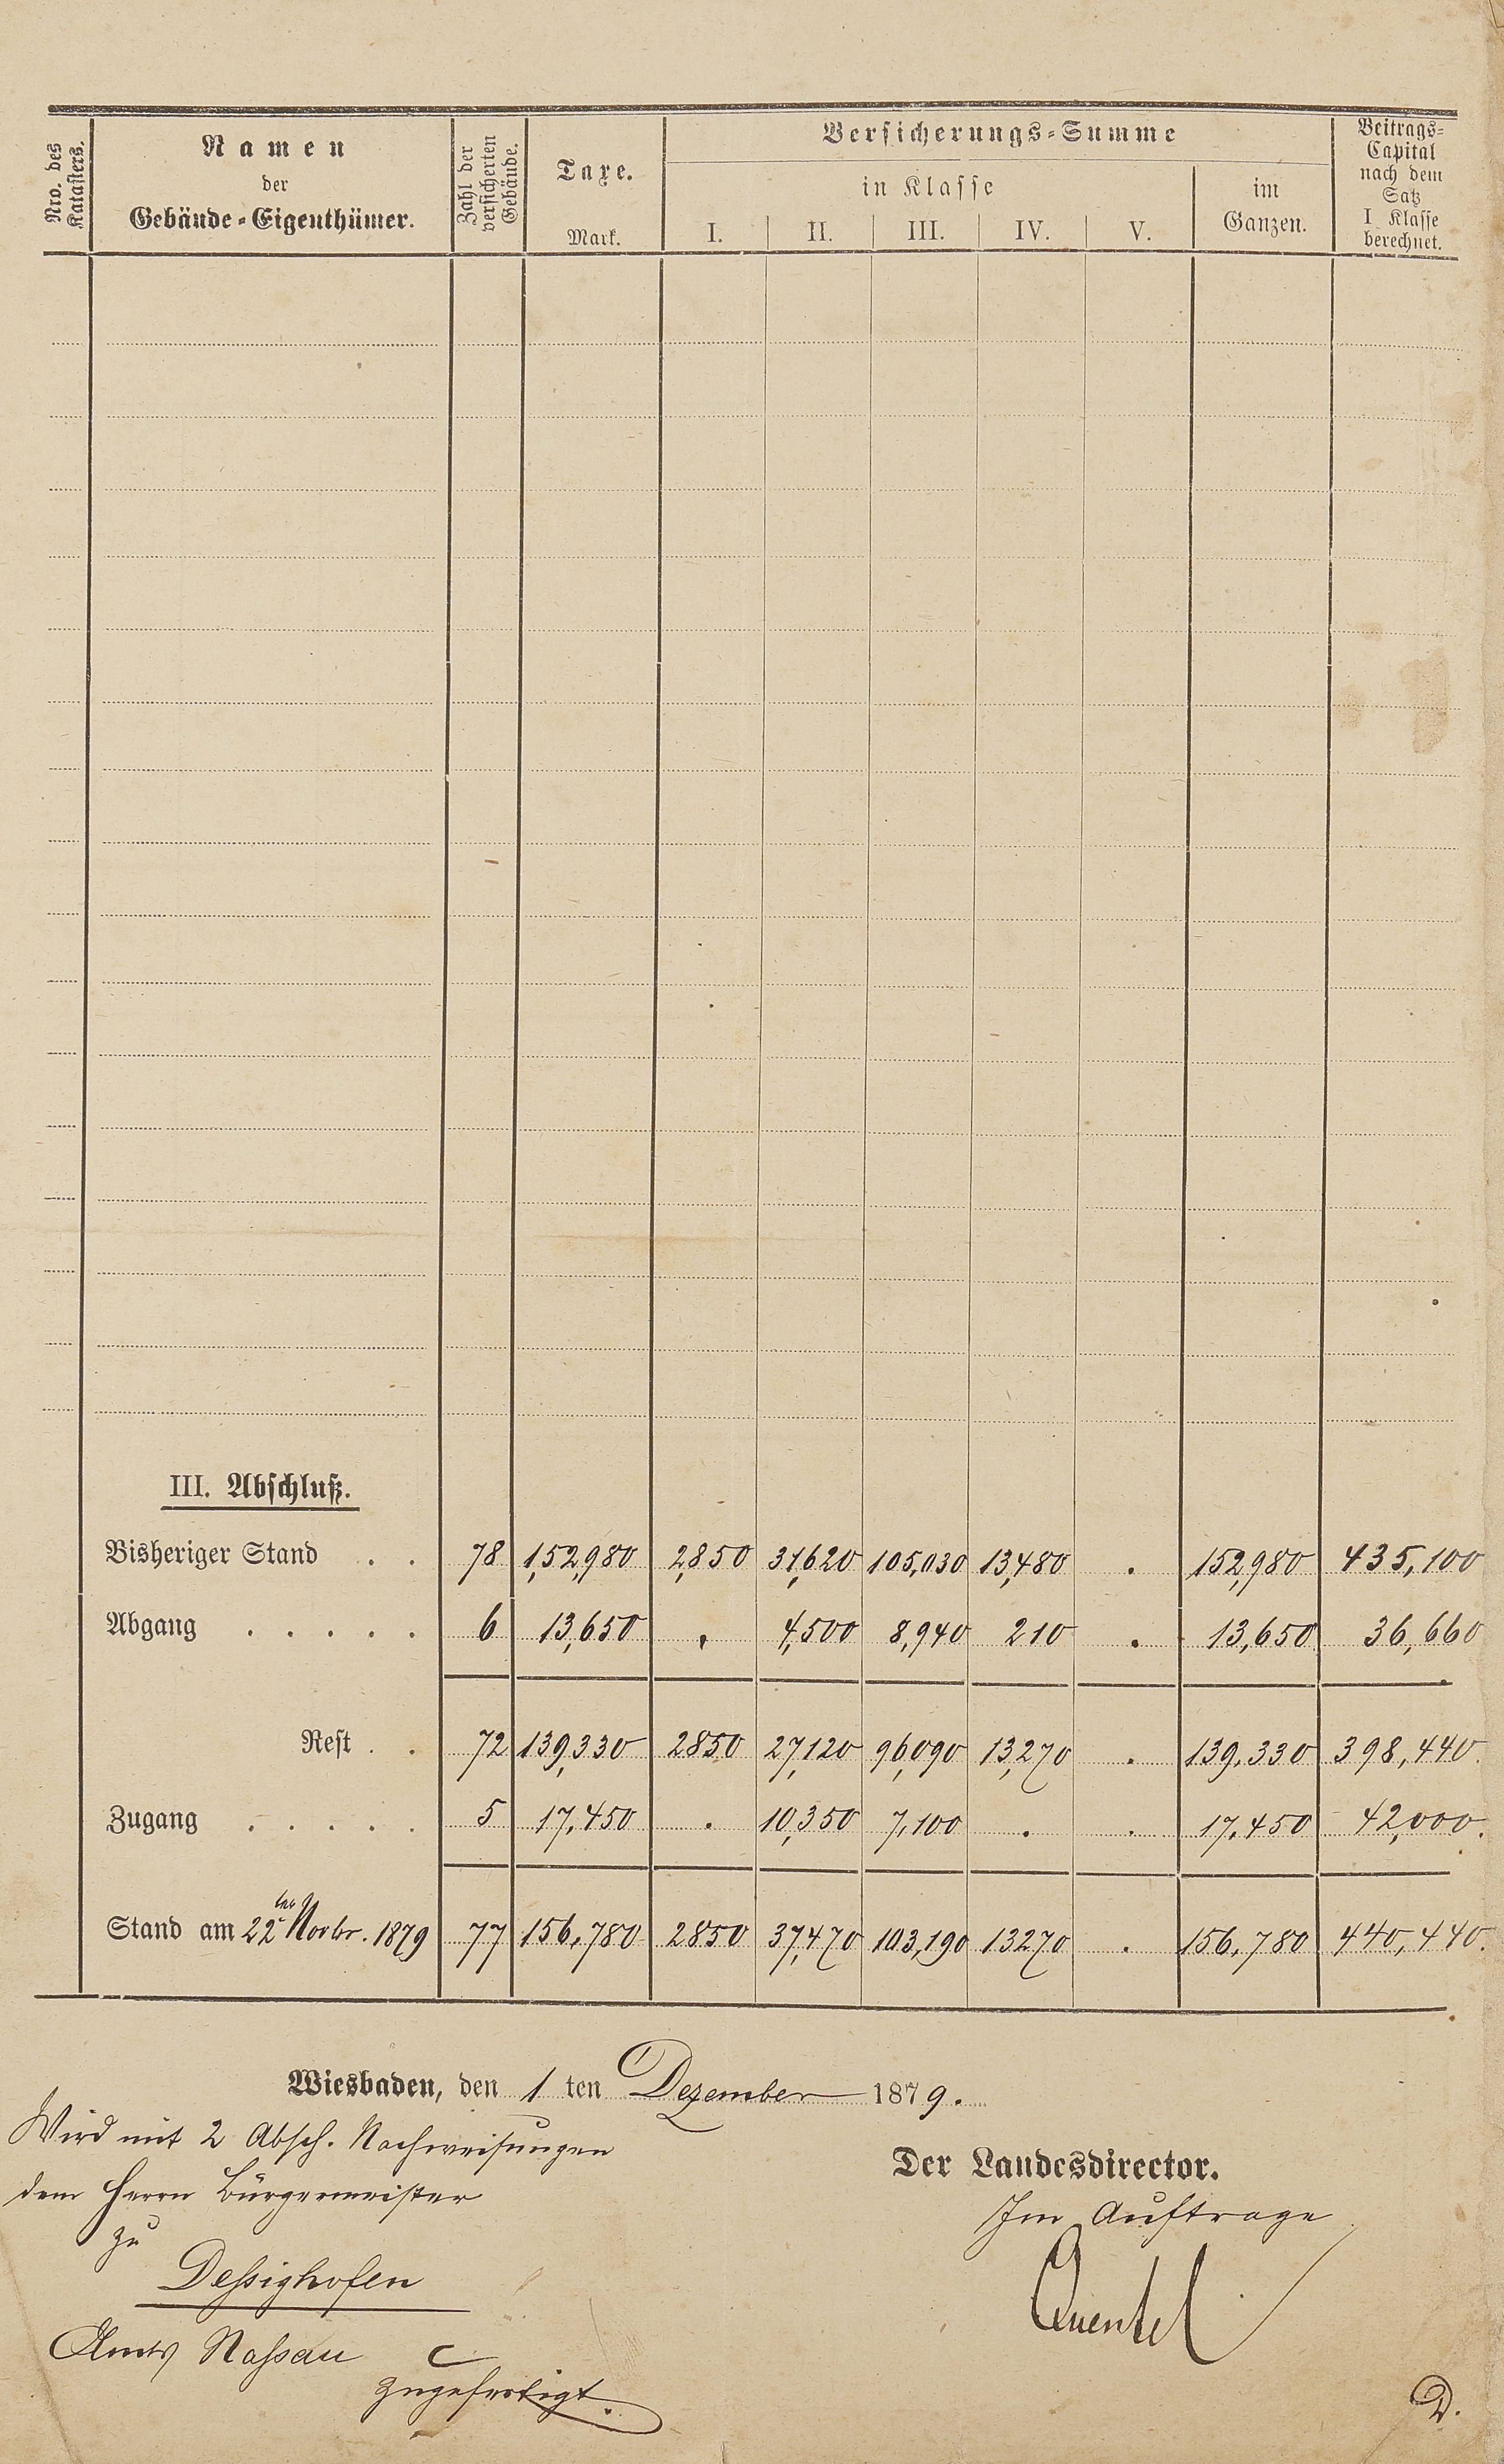 Nro. des Katasters.
Namen
der
Gebäude-Eigenthümer.
Zahl der versicherten Gebäude.
Taxe.
Mark.
Versicherungs-Summe
in Klasse
I. II. III. IV. V.
im
Ganzen.
Beitrags-
Capital
nach dem
Satz
I Klasse
berechnet.
III. Abschluß.
Bisheriger Stand . . 78 1,52,980 2,850 31,620 105,030 13,480 . 152,980 435,100
Abgang . . . . . 6 13,650 . 4,500 8,940 210 . 13,650 36,660
Rest . . 72 139,330 2850 27,120 96,090 13,270 . 139,330 398,440.
Zugang . . . . . 5 17,450 . 10,350 7,100 . . 17,450 42,000.
Stand am 22ten Novbr. 1879 77 156,780 2850 37,470 103,190 13270 . 156,780 440,440.
Wiesbaden, den 1 ten Dezember 1879.
Wird mit 2 Absch. Nachweisungen
dem Herrn Bürgermeister
zu
Dessighofen
Amts Nassau
zugefertigt.
Der Landesdirector.
Im Auftrage
Quentel
D.